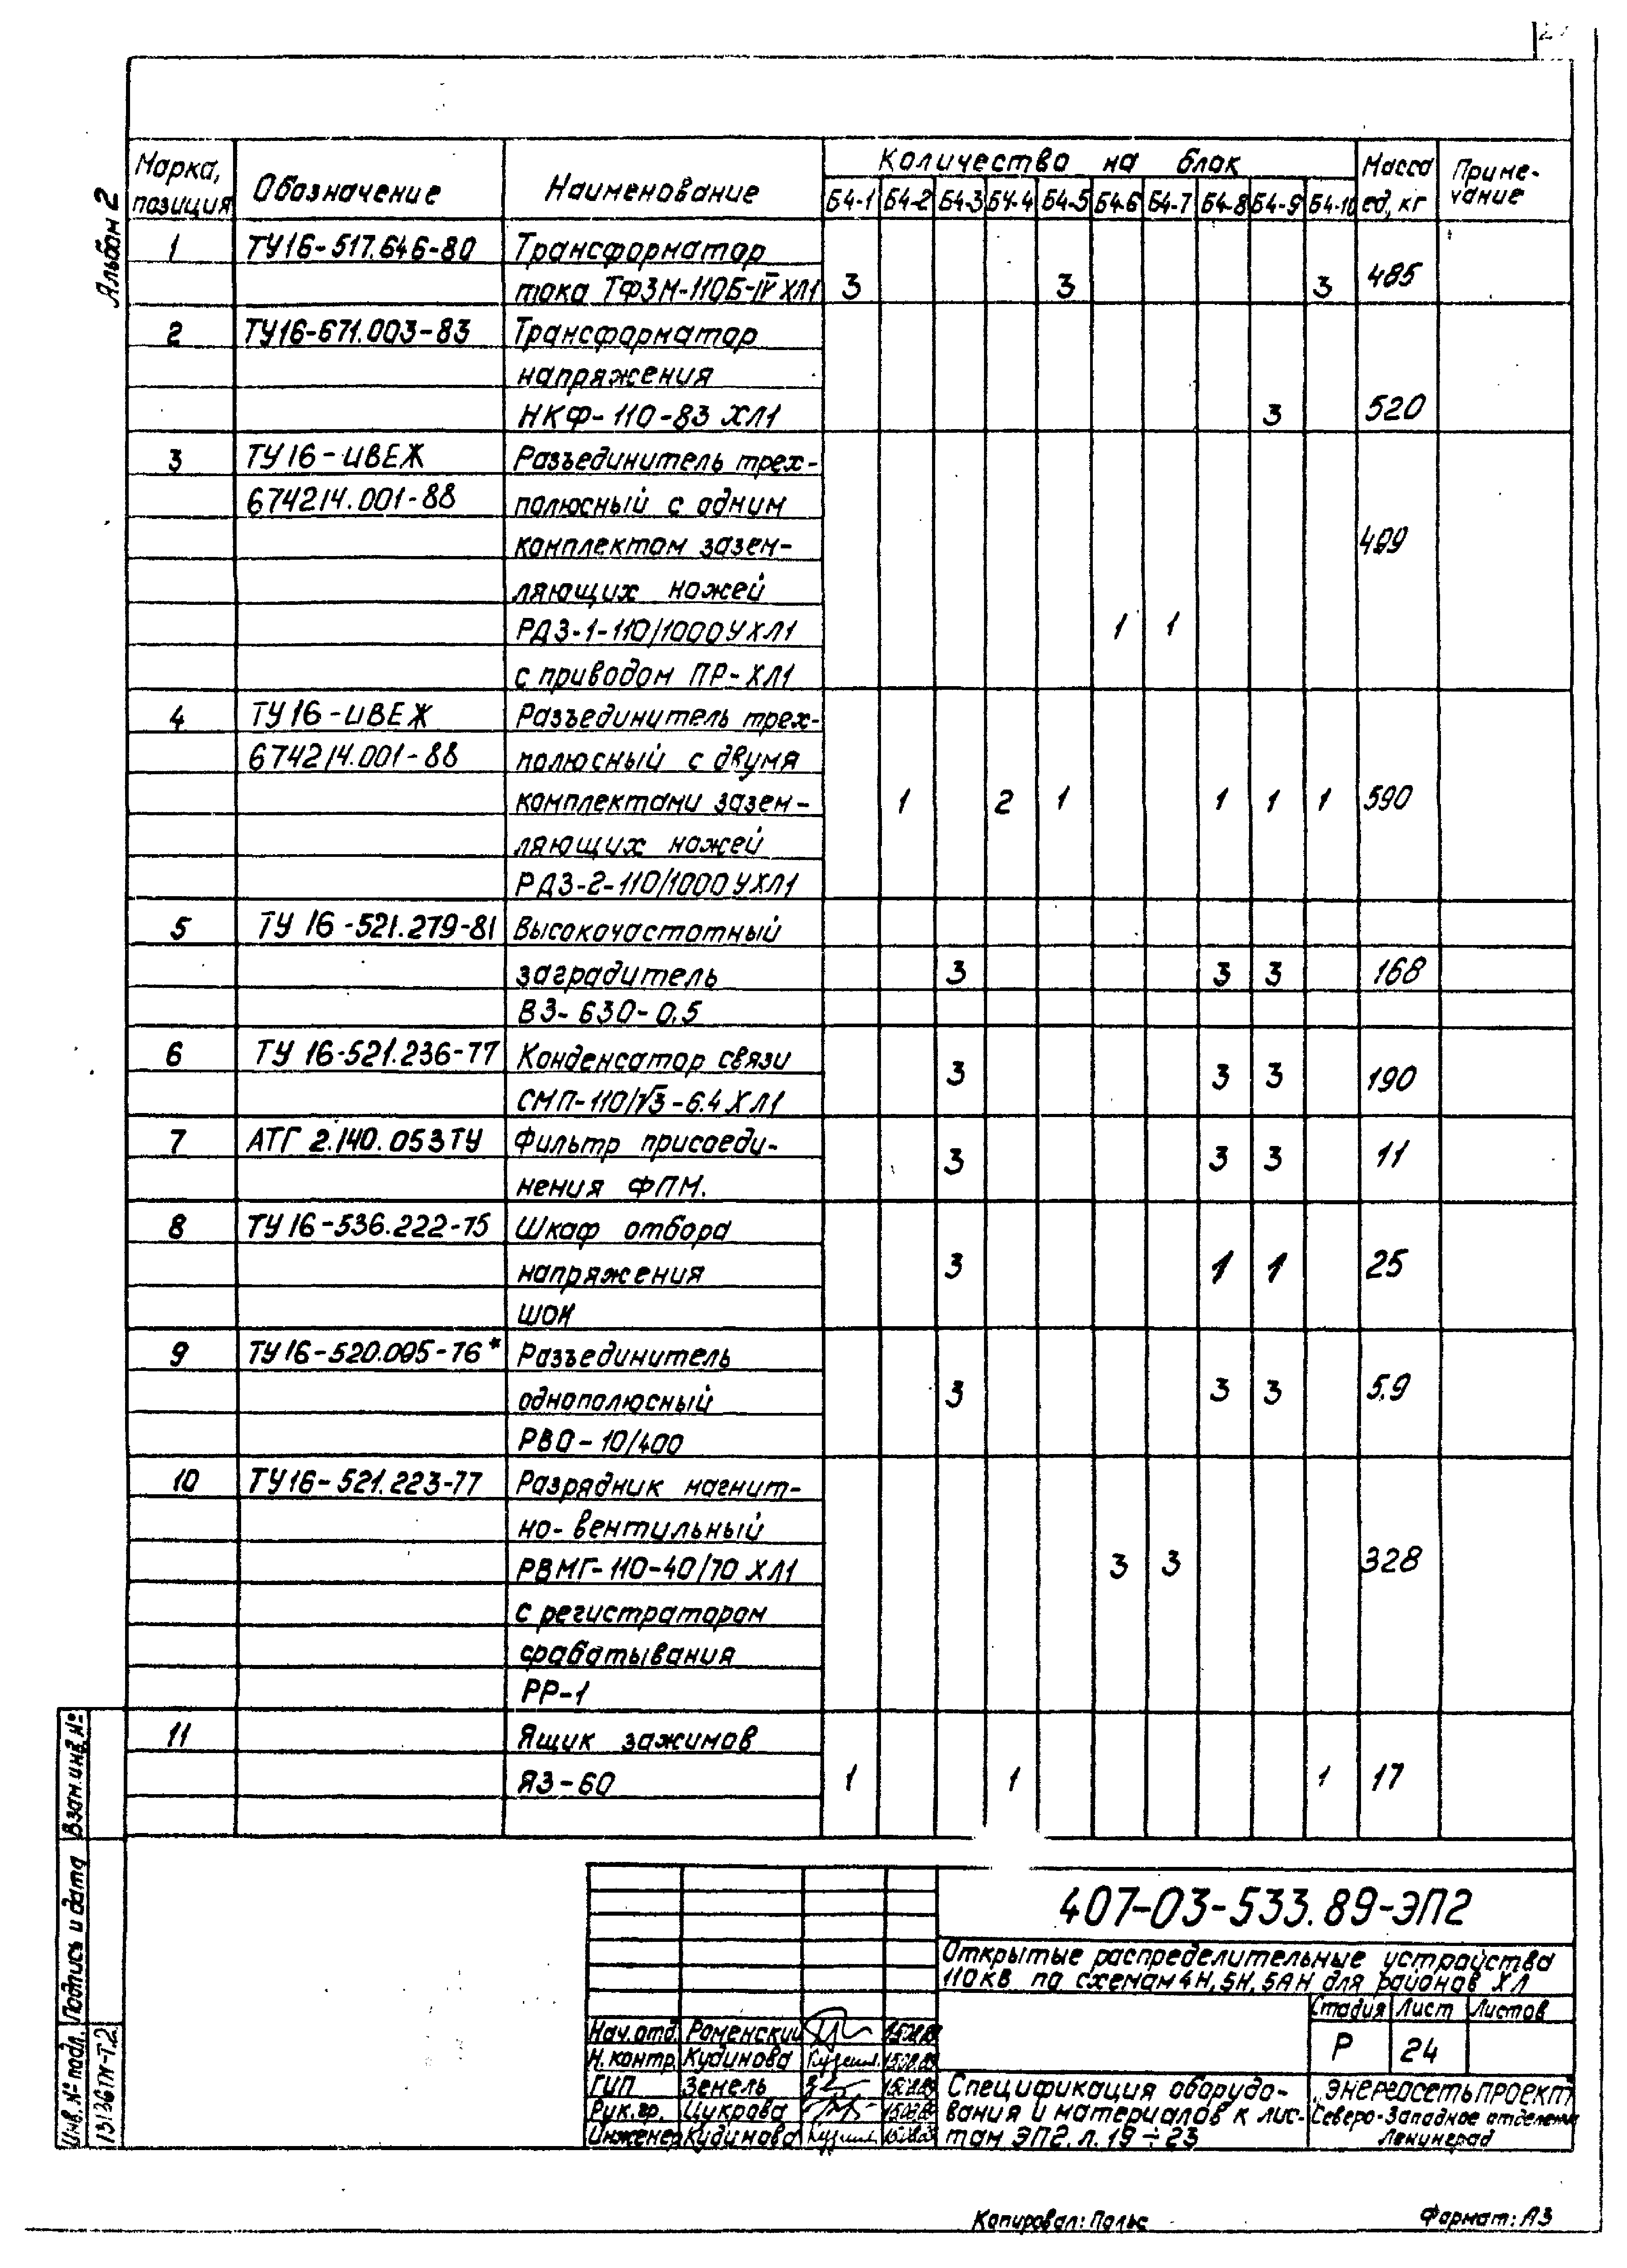 Альбом 2
Марка, позиция
Обозначение
Наименование
Количество на блок
Б4-1 Б4-2 Б4-3 Б4-4 Б4-5 Б4-6 Б4-7 Б4-8 Б4-9 Б4-10
Масса ед, кг
Приме-
чание
1 ТУ16-517.646-80 Трансформатор
тока ТФЗМ-110Б-IV ХЛ1 3 3 3 485
2 ТУ16-671.003-83 Трансформатор
напряжения
НКФ-110-83 ХЛ1 3 520
3 ТУ16-ИВЕЖ Разъединитель трех-
674214.001-88 полюсный с одним
комплектом зазем- 499
ляющих ножей
РДЗ-1-110/1000УХЛ1 1 1
с приводом ПР-ХЛ1
4 ТУ16-ИВЕЖ Разъединитель трех-
674214.001-88 полюсный с двумя
комплектами зазем- 1 2 1 1 1 1 590
ляющих ножей
РДЗ-2-110/1000УХЛ1
5 ТУ 16-521.279-81 Высокочастотный
заградитель 3 3 3 168
ВЗ-630-0,5
6 ТУ 16-521.236-77 Конденсатор связи
СМП-110/√3-6.4ХЛ1 3 3 3 190
7 АТГ 2.140.053ТУ Фильтр присоеди-
нения ФПМ. 3 3 3 11
8 ТУ16-536.222-75 Шкаф отбора
напряжения 3 1 1 25
ШОН
9 ТУ16-520.095-76* Разъединитель
однополюсный 3 3 3 5,9
РВО-10/400
10 ТУ16-521.223-77 Разрядник магнит-
но-вентильный
РВМГ-110-40/70 ХЛ1 3 3 328
с регистратором
срабатывания
РР-1
11 Ящик зажимов
ЯЗ-60 1 1 1 17
Взам.инв.№
Подпись и дата
Инв.№ подл.
407-03-533.89-ЭП2
Открытые распределительные устройства
110кВ по схемам 4Н, 5Н, 5АН для районов ХЛ
Стадия Лист Листов
Р 24
Нач.отд. Роменский
Н.контр. Кудинова
ГИП Зенель
Рук.гр. Цукрова
Инженер Кудинова
Спецификация оборудо-
вания и материалов к лис-
там ЭП2.л.19÷23
"Энергосетьпроект"
Северо-Западное отделение
Ленинград
Копировал: Польс
Формат: А3